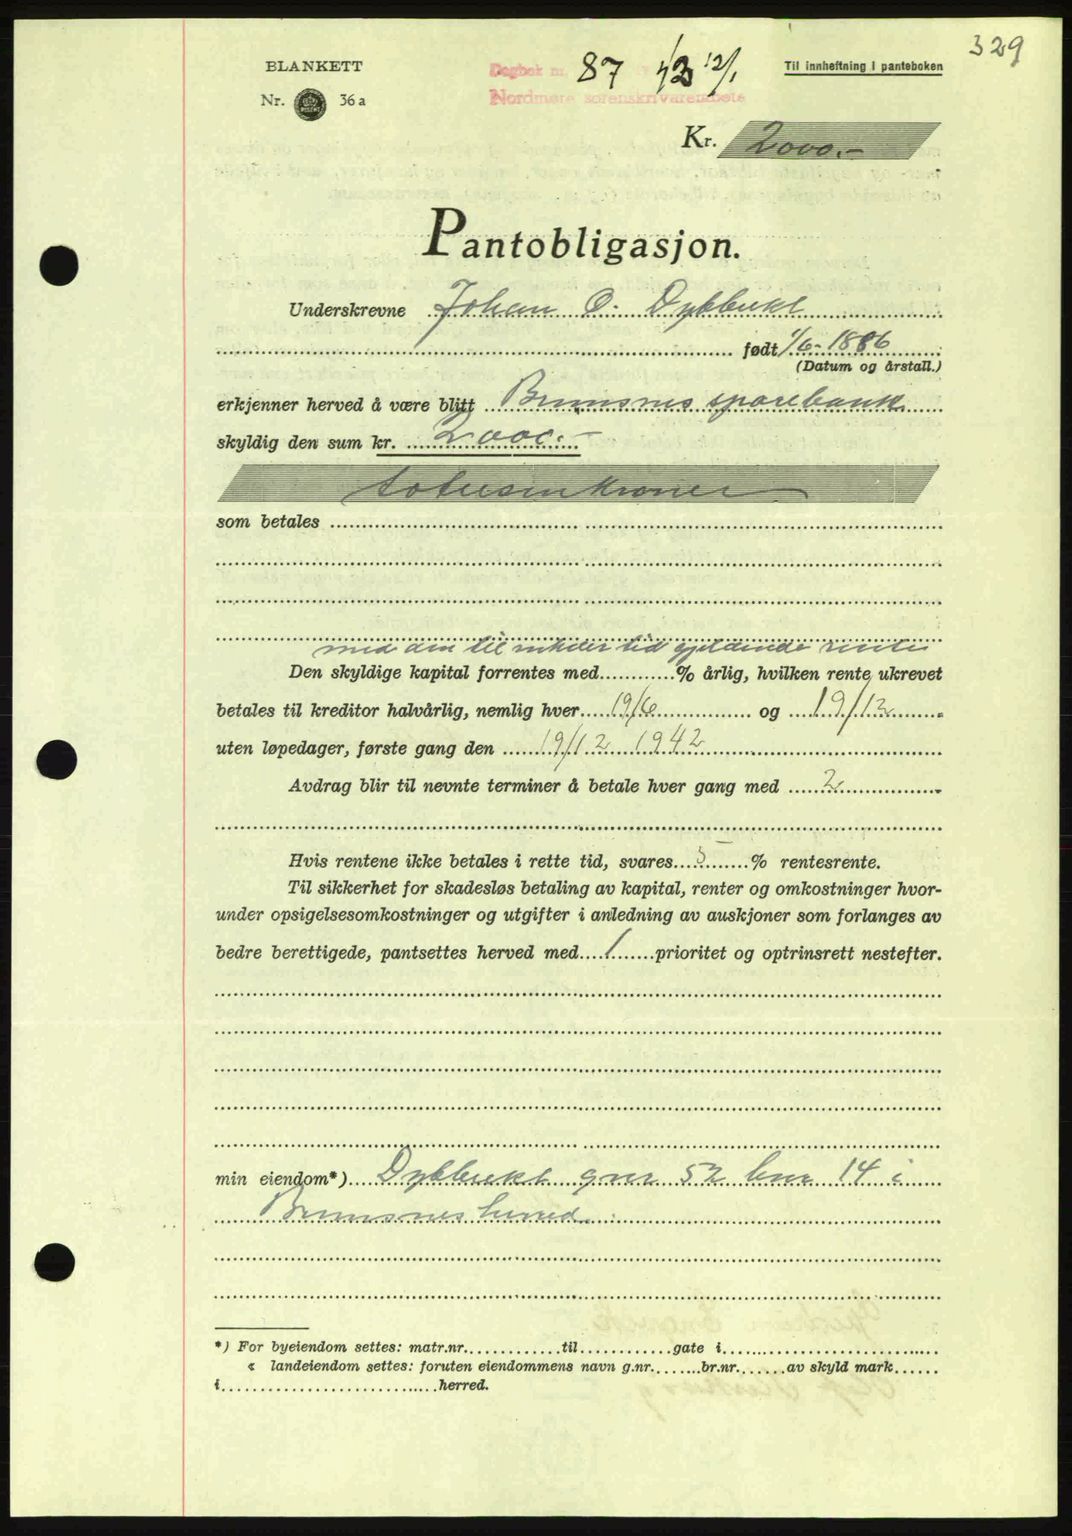 329
BLANKETT
Nr. 36a
Dagbok nr. 87 / 43 12/1
Nordmøre sorenskriverembete
Til innheftning i panteboken
Kr. 2000.-
Pantobligasjon.
Underskrevne Johan O. Dybbukt
født 1/6-1886
(Datum og årstall.)
erkjenner herved å være blitt Bremsnes sparebank
skyldig den sum kr. 2000.-
totusen kroner
som betales
med den til enhver tid gjeldende rente
Den skyldige kapital forrentes med % årlig, hvilken rente ukrevet
betales til kreditor halvårlig, nemlig hver 19/6 og 19/12
uten løpedager, første gang den 19/12 1942
Avdrag blir til nevnte terminer å betale hver gang med 2
Hvis rentene ikke betales i rette tid, svares 5 % rentesrente.
Til sikkerhet for skadesløs betaling av kapital, renter og omkostninger hvor-
under opsigelsesomkostninger og utgifter i anledning av auskjoner som forlanges av
bedre berettigede, pantsettes herved med 1 prioritet og optrinsrett nestefter.
min eiendom*) Dybbukt gnr 52 bnr 14 i
Bremsnes herred.
*) For byeiendom settes: matr.nr. til gate i
« landeiendom settes: foruten eiendommens navn g.nr. br.nr. av skyld mark
i herred.